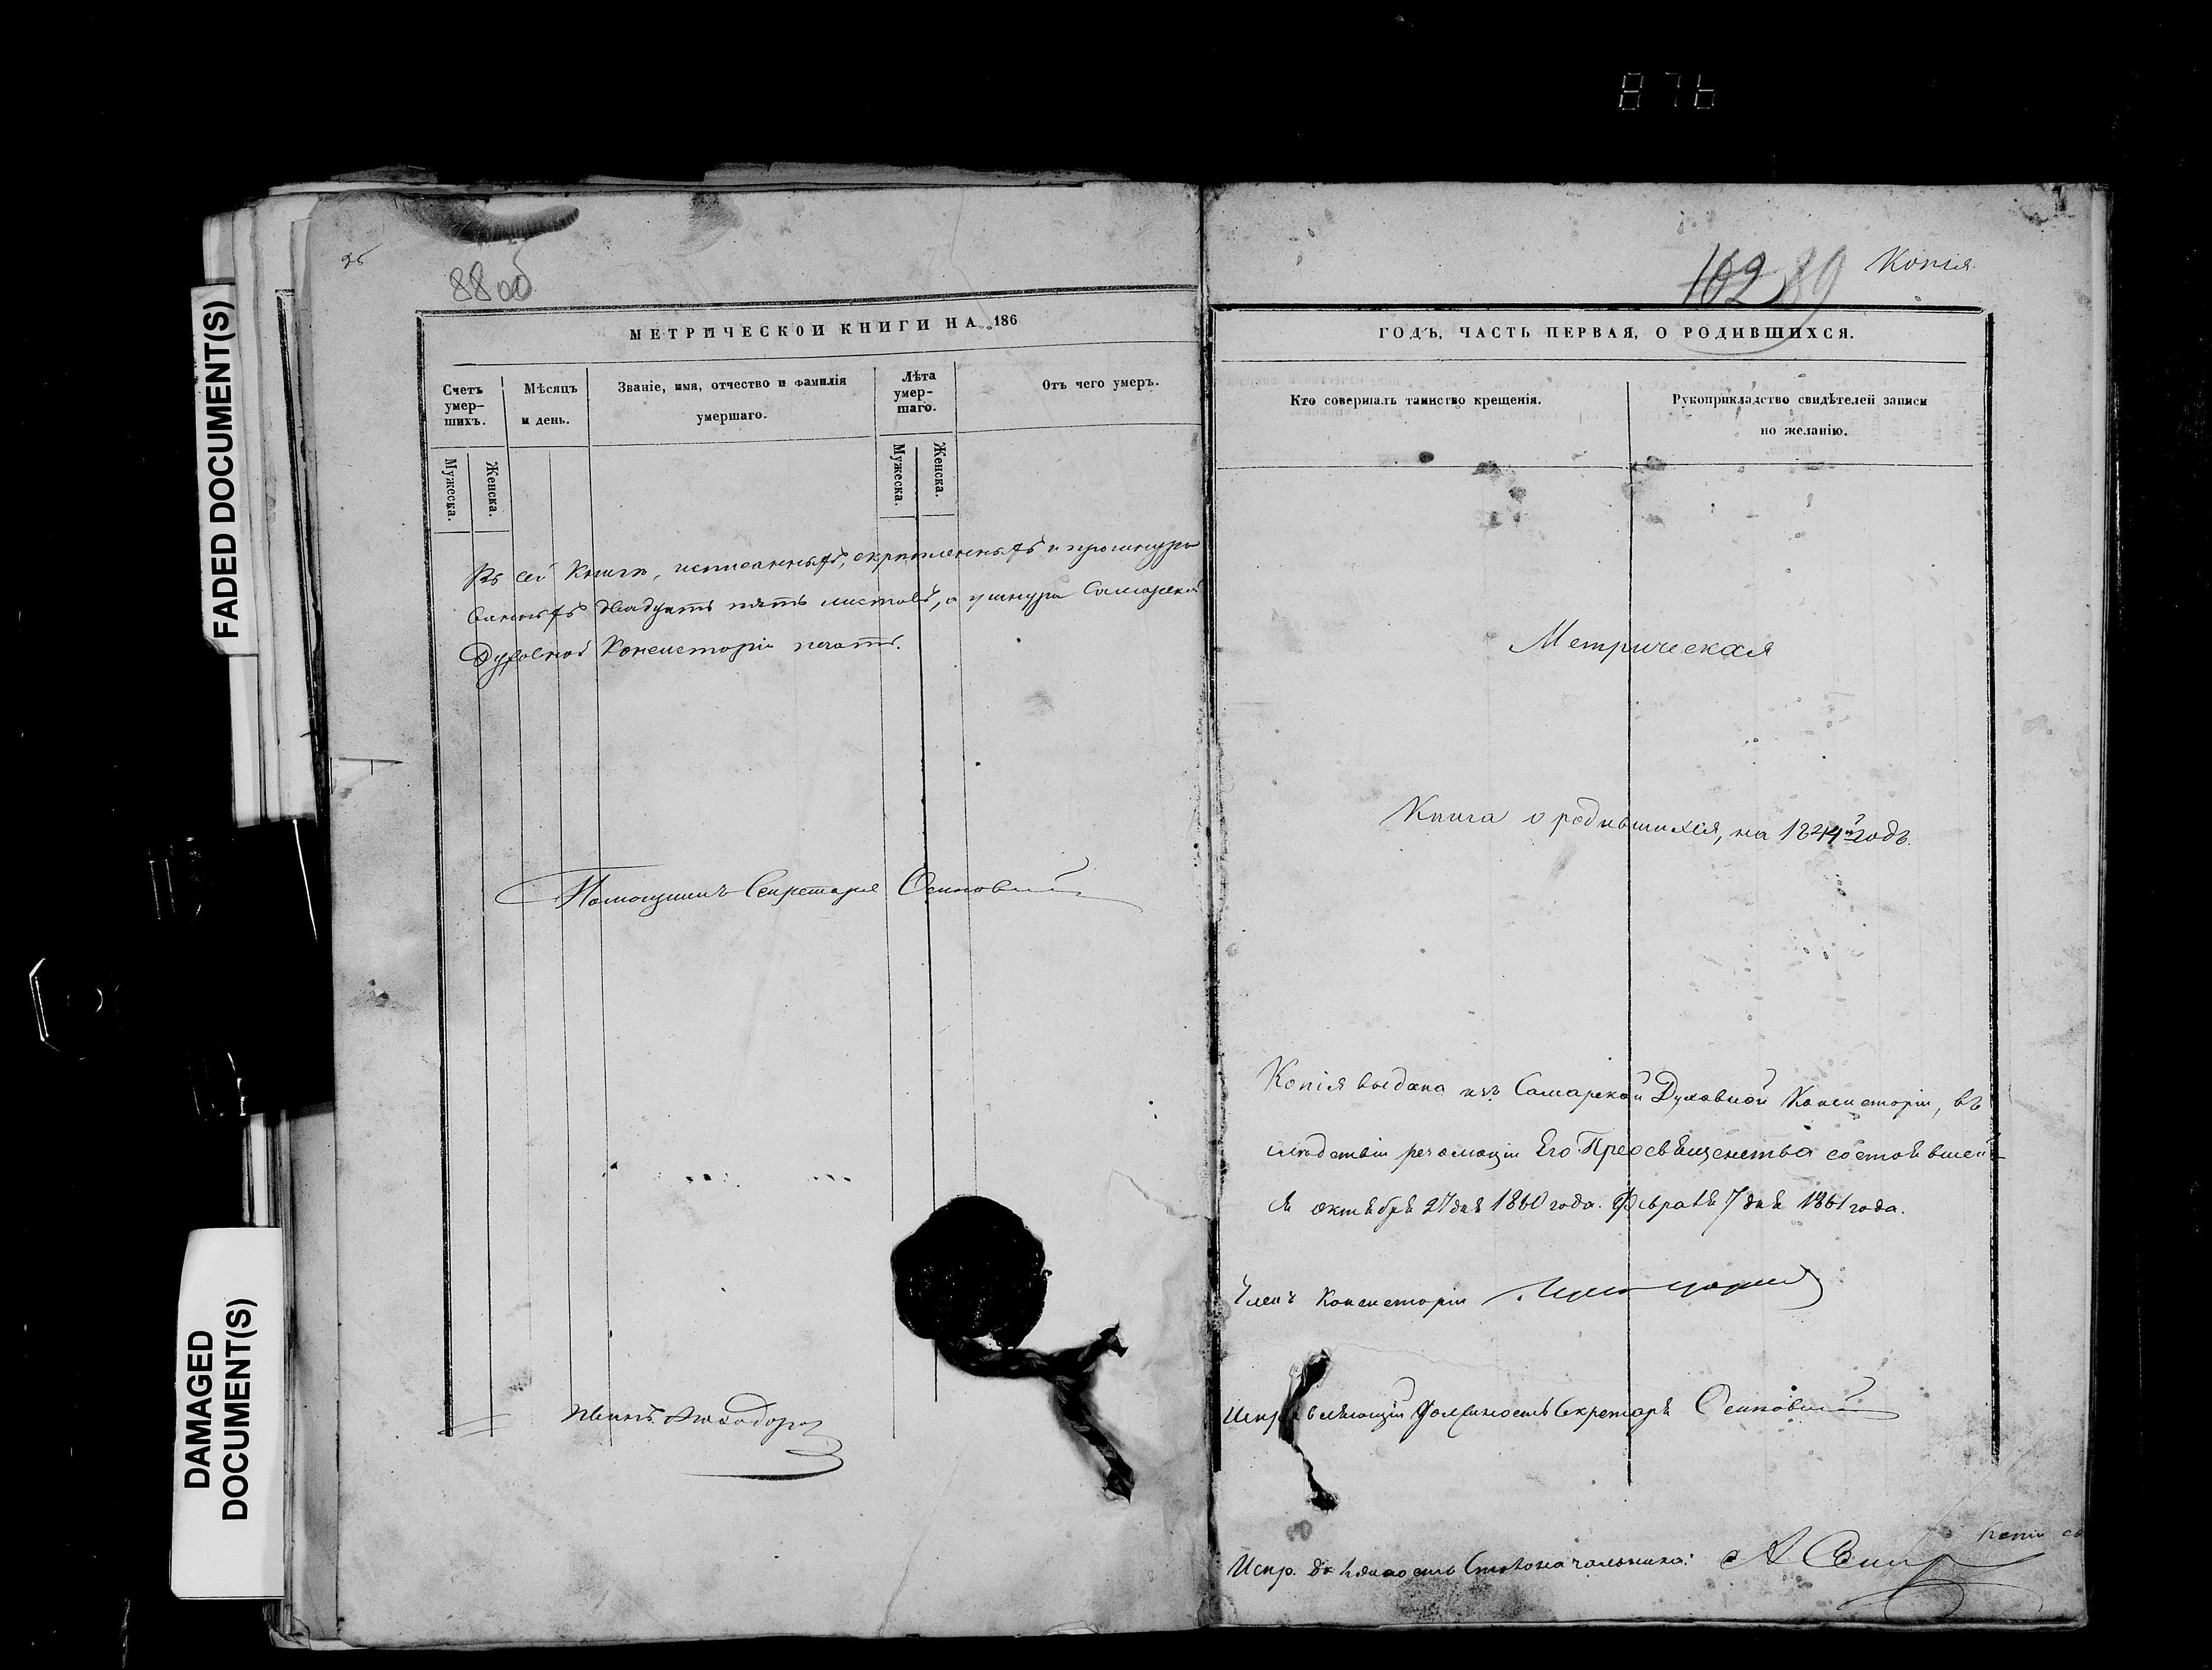 876
FADED DOCUMENT(S)
DAMAGED
DOCUMENT(S)
88 об
МЕТРИЧЕСКОЙ КНИГИ НА 186
Счетъ
умер-
шихъ.
Мѣсяцъ
и день.
Званіе, имя, отчество и фамилія
умершаго.
Лѣта
умер-
шаго.
Отъ чего умеръ.
Мужеска.
Женска.
Мужеска.
Женска.
Въ сей Книгѣ, исписанныхъ, скрѣпленныхъ и прошнуро
ванныхъ двадцать пять листовъ, а у шнура Самарской
Духовной Консисторіи печать.
Помощникъ Секретаря Осиновскій
Иванъ
102 89 Копія
ГОДЪ, ЧАСТЬ ПЕРВАЯ, О РОДИВШИХСЯ.
Кто совершалъ таинство крещенія.
Рукоприкладство свидѣтелей записи
по желанію.
Метрическая
Книга о родившихся, на 1844й годъ.
Копія выдана изъ Самарской Духовной Консисторіи, въ
слѣдствіи резолюціи Его Преосвященства состоявшей-
ся октября 27 дня 1860 года. Февраля 7 дня 1861 года.
Членъ Консисторіи
Исправляющій Должность Секретаря Осиновскій
Испр. должность Столоначальника:
Копія съ